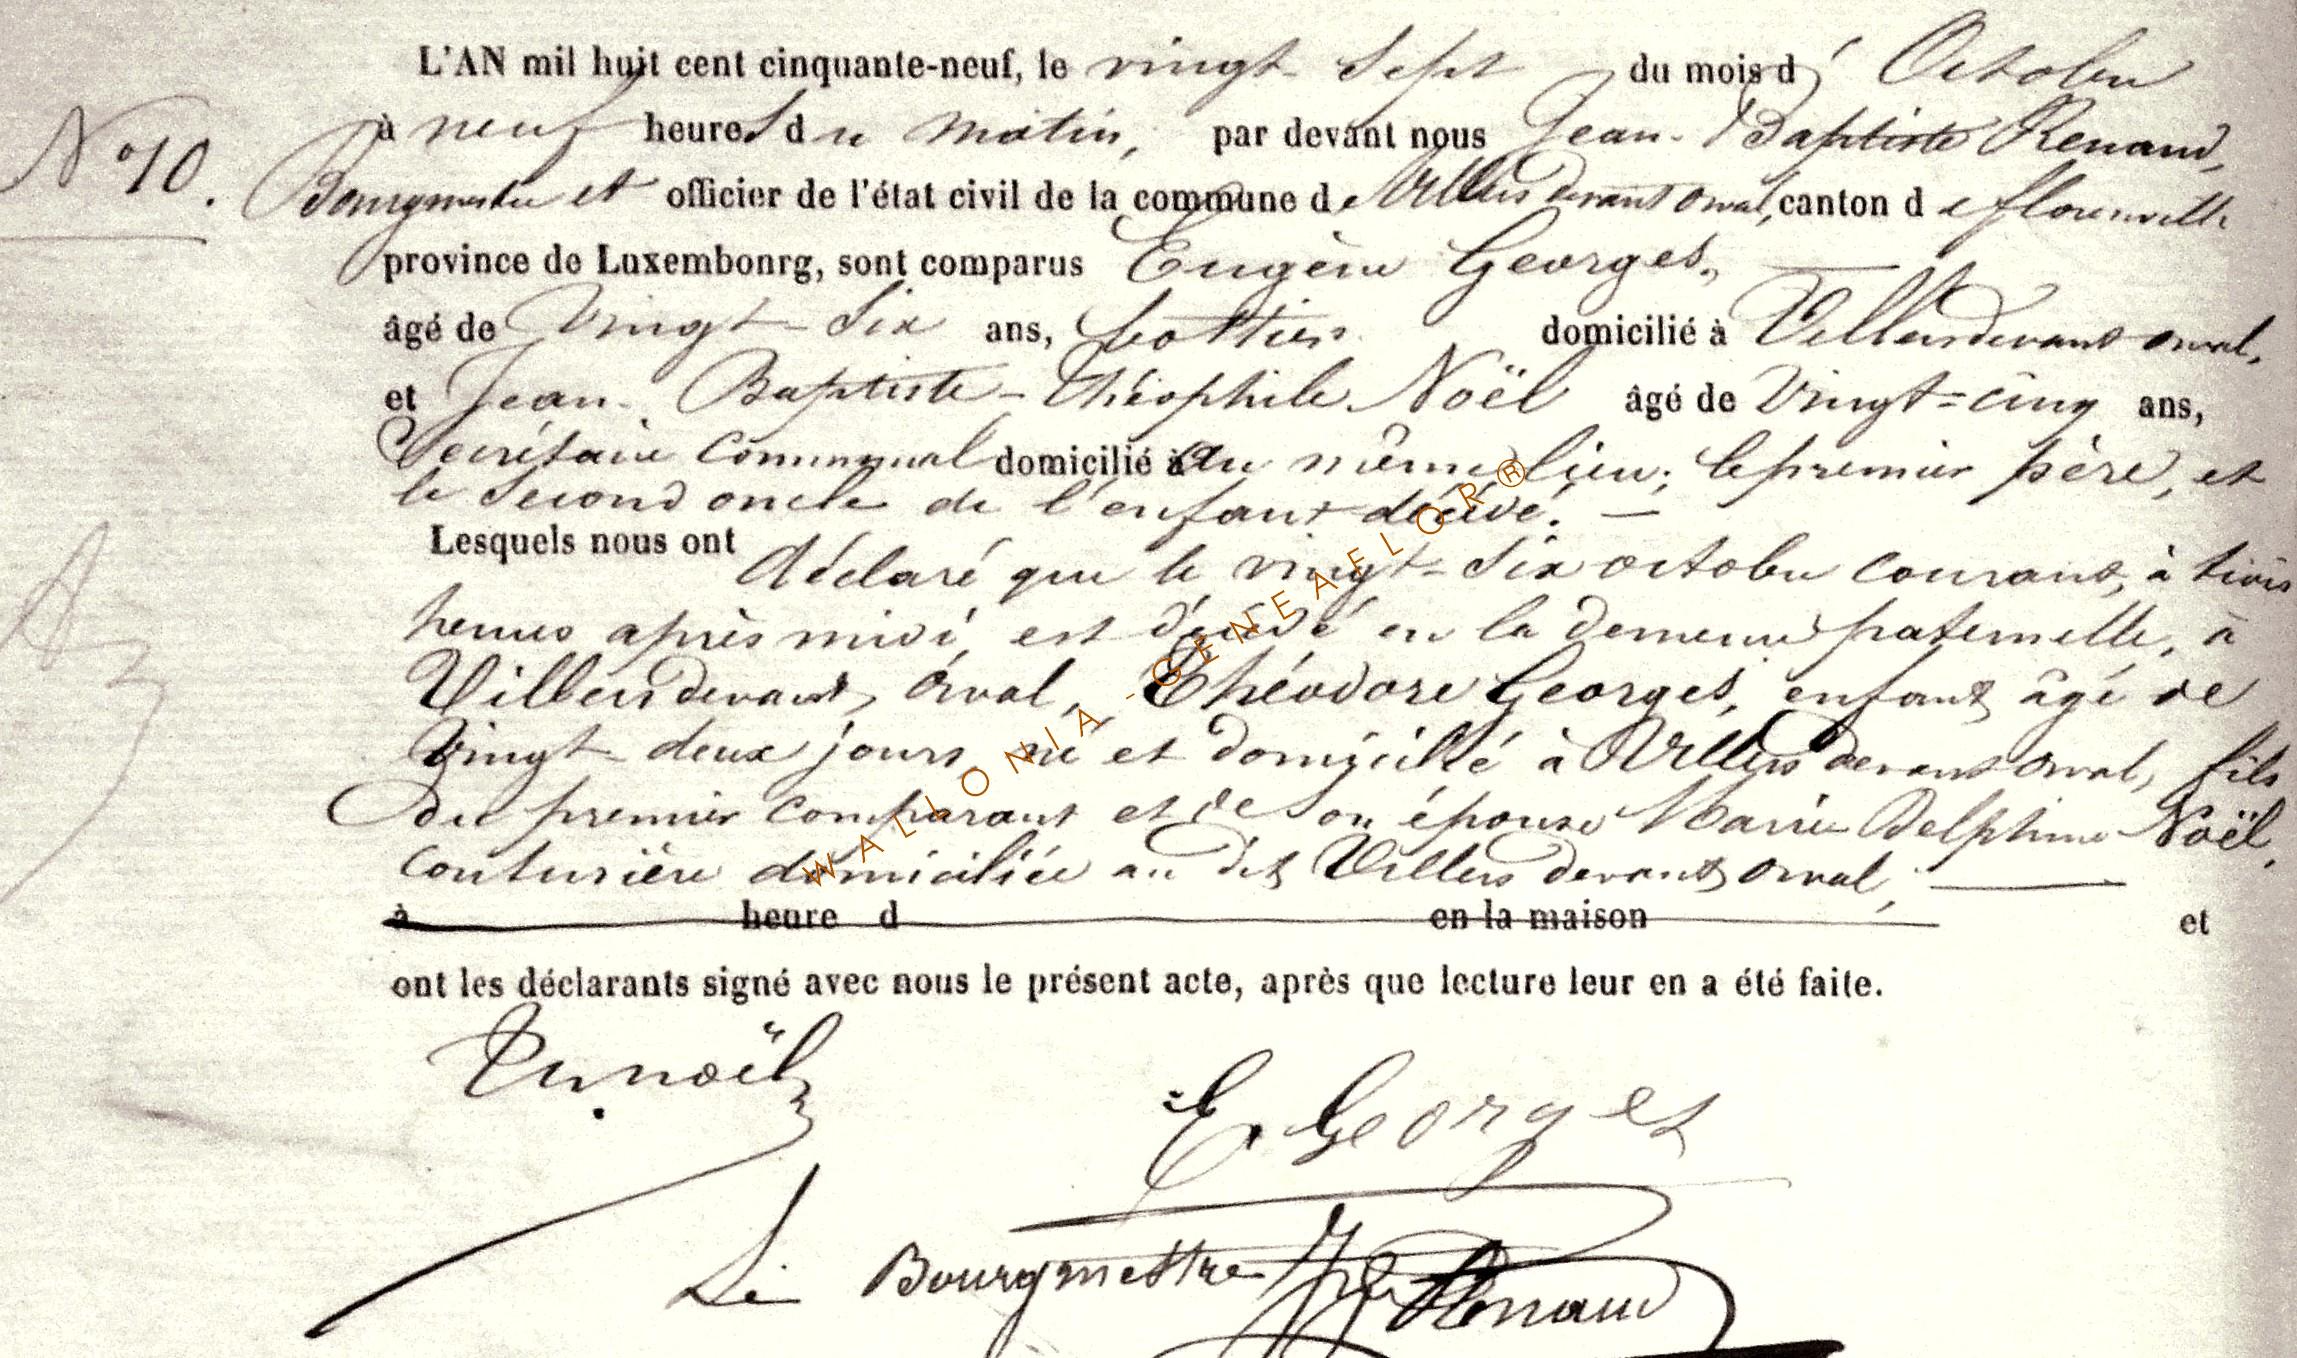 L'AN mil huit cent cinquante-neuf, le vingt sept du mois d' Octobre
à neuf heures du matin, par devant nous Jean-Baptiste Renaud,
N° 10. Bourgmestre et officier de l'état civil de la commune de Villers devant Orval, canton de florenville
province de Luxembonrg, sont comparus Eugène Georges,
âgé de Vingt-Six ans, bottier domicilié à Villers devant orval,
et Jean-Baptiste-Théophile Noël âgé de Vingt-cinq ans,
Secrétaire Communal domicilié à au même lieu; le premier père, et
le Second oncle de l'enfant décédé.
Lesquels nous ont déclaré que le vingt-Six octobre courant, à trois
heures après midi, est décédé en la demeure paternelle, à
Villers devant Orval, Théodore Georges, enfant âgé de
Vingt-deux jours, né et domicilié à Villers devant orval, fils
du premier comparant et de Son épouse Marie Delphine Noël,
Couturière domiciliée au dit Villers devant orval,
à heure d en la maison et
ont les déclarants signé avec nous le présent acte, après que lecture leur en a été faite.
noël
E Georges
Le Bourgmestre Renaud
WALLONIA-GENEAFLOR®